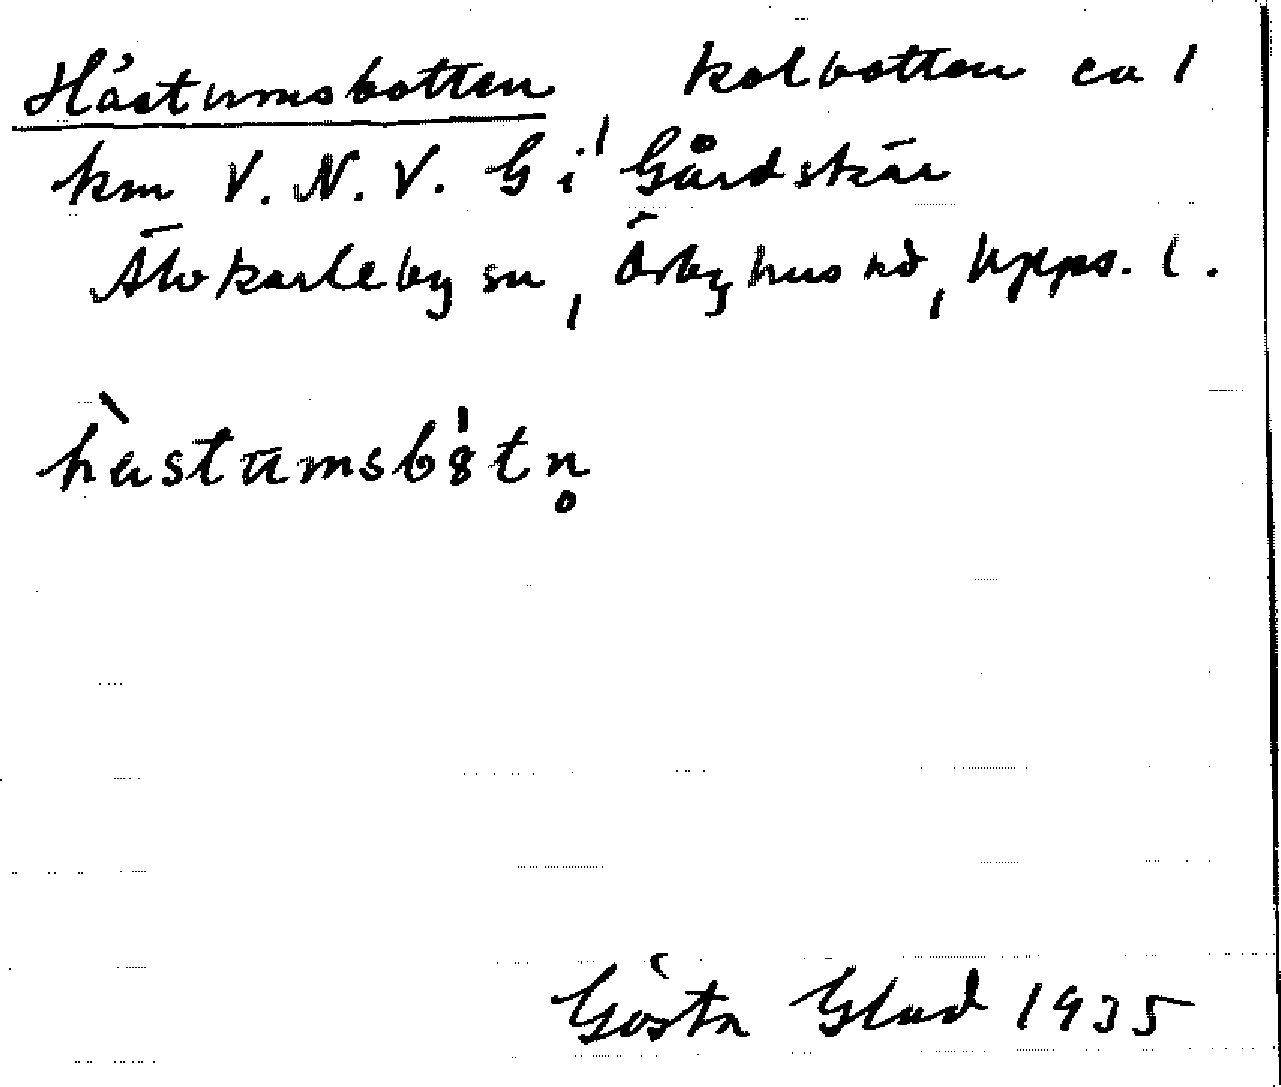 Håstumsbotten kolbotten ca 1
km V.N.V. G i Gårdskär
Älvkarleby sn, Örbyhus hd, Upps. l.
hastumsbåtn̥
Gösta Glad 1935